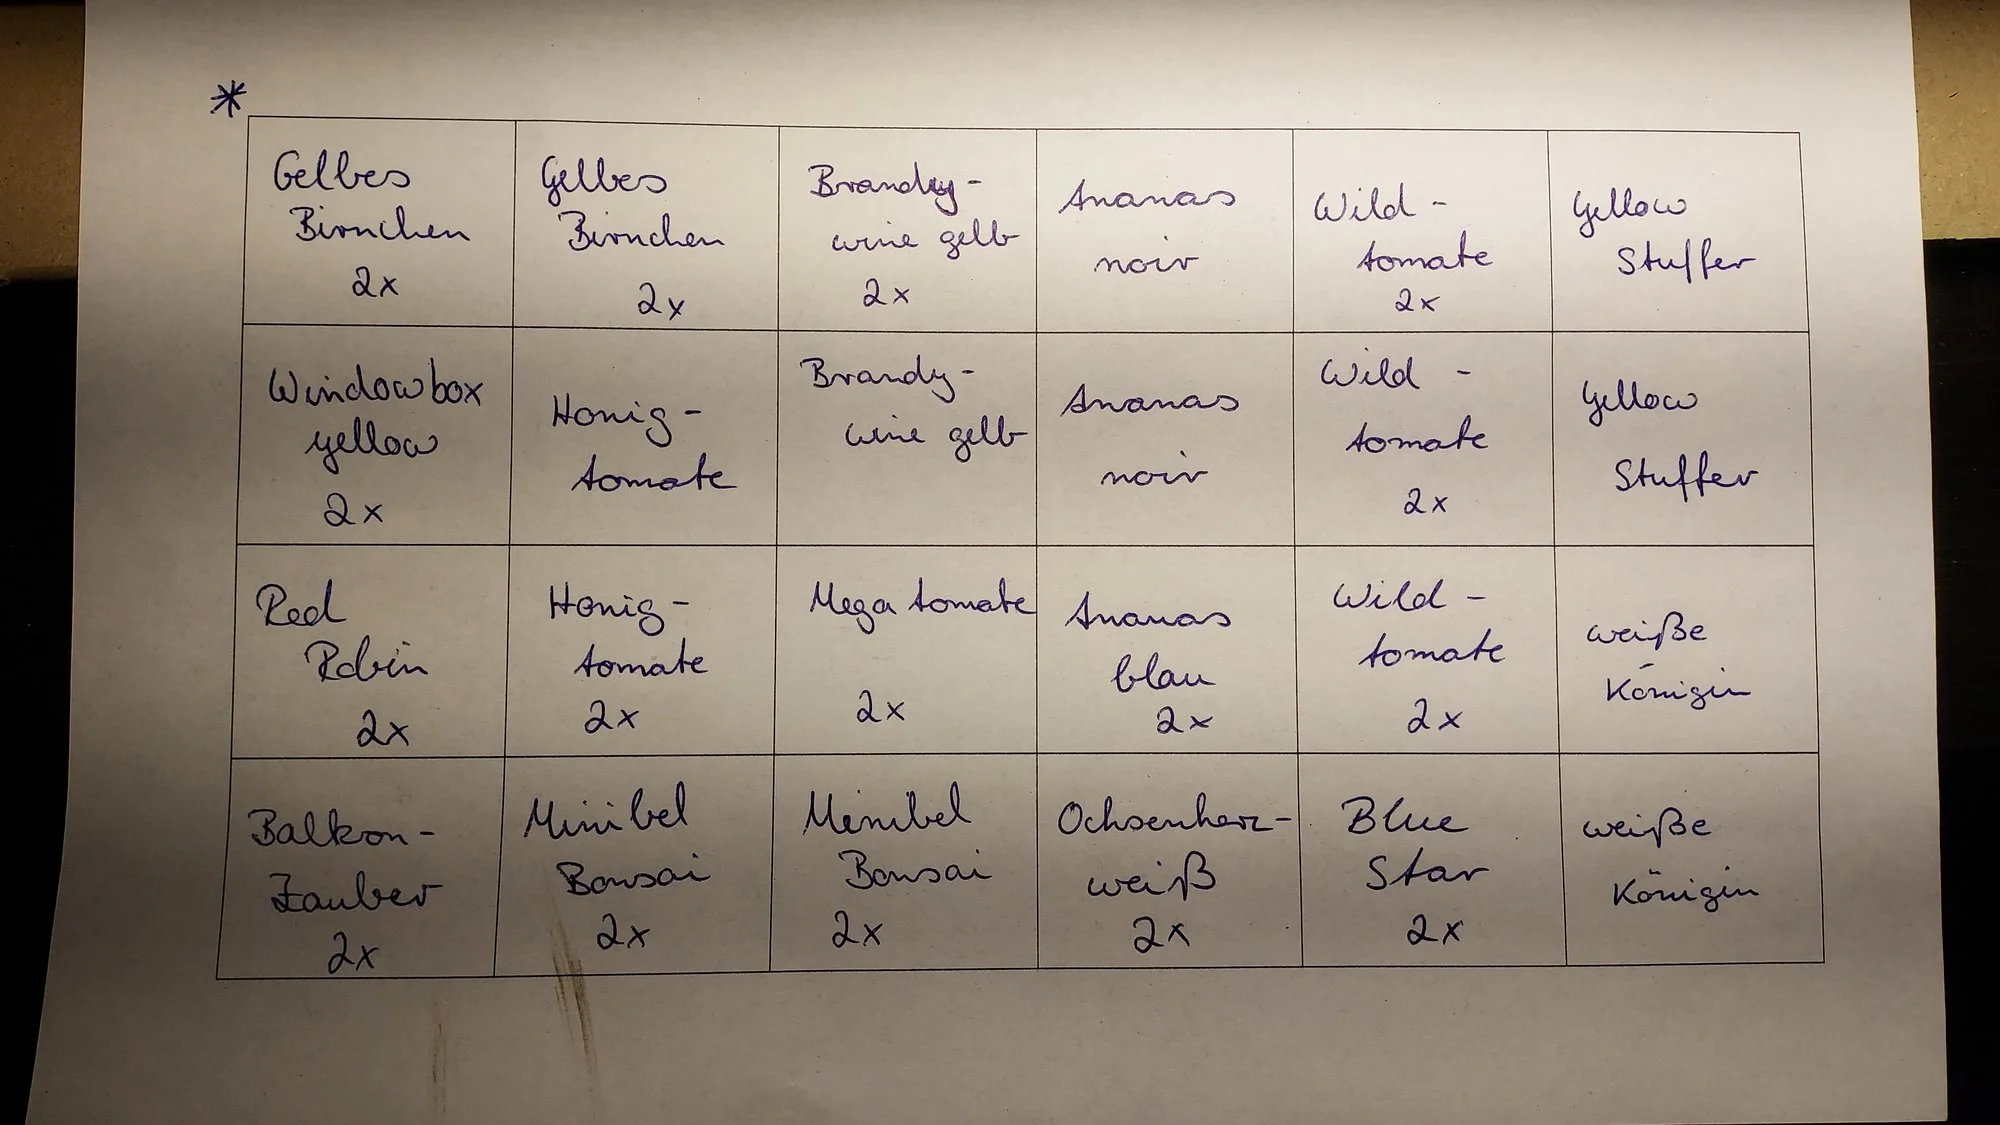 *
Gelbes
Birnchen
2x
Gelbes
Birnchen
2x
Brandy-
wine gelb
2x
Ananas
noir
Wild-
tomate
2x
Yellow
Stuffer
Windowbox
yellow
2x
Honig-
tomate
Brandy-
wine gelb
Ananas
noir
Wild-
tomate
2x
Yellow
Stuffer
Red
Robin
2x
Honig-
tomate
2x
Mega tomate
2x
Ananas
blau
2x
Wild-
tomate
2x
weiße
Königin
Balkon-
zauber
2x
Minibel
Bonsai
2x
Minibel
Bonsai
2x
Ochsenherz-
weiß
2x
Blue
Star
2x
weiße
Königin